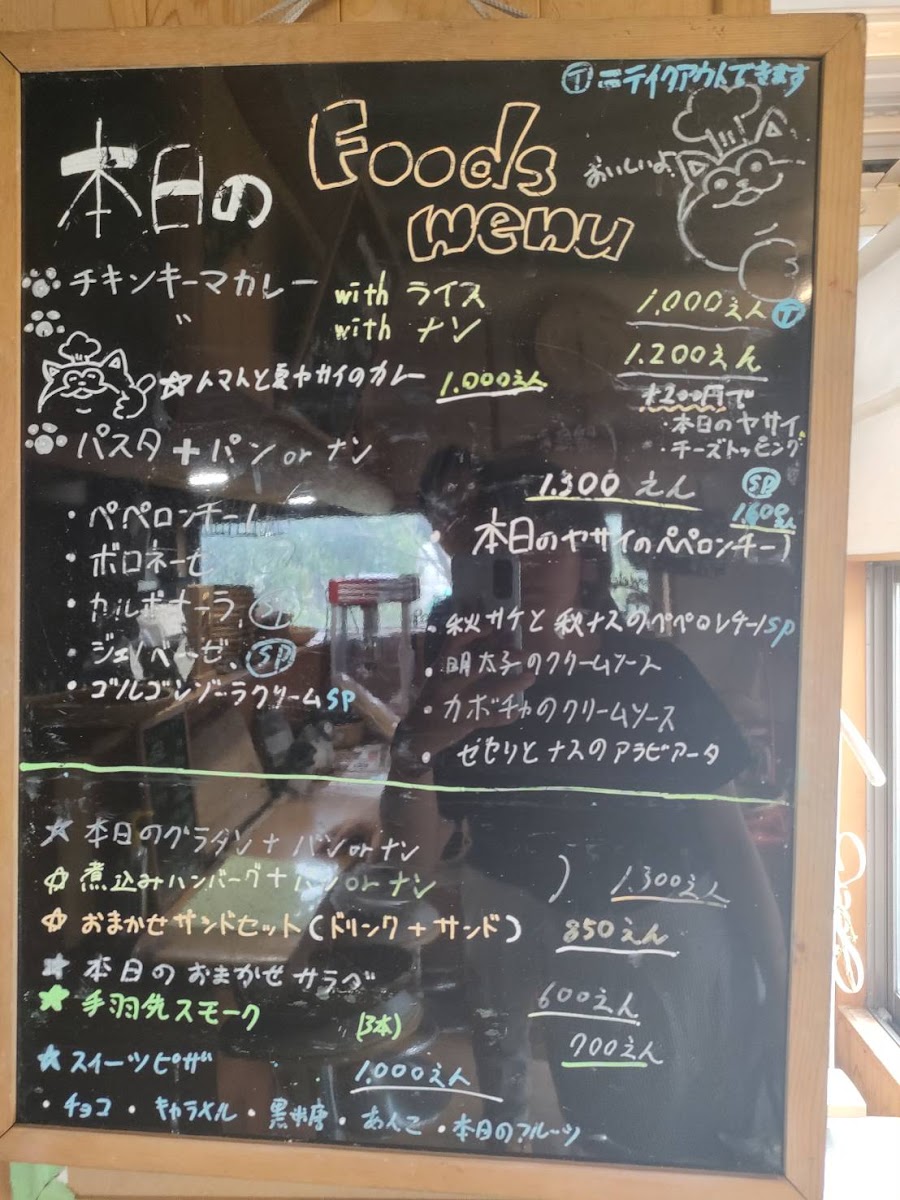 Ⓣ=テイクアウトできます
本日の Foods menu
おいしいよ
チキンキーマカレー with ライス 1.000えん Ⓣ
〃 with ナン 1.200えん
☆トマトと夏ヤサイのカレー 1.000えん
+200円で
・本日のヤサイ
・チーズトッピング
パスタ+パン or ナン 1.300えん SP 1.600えん
・ペペロンチーノ
・ボロネーゼ
・カルボナーラ
・ジェノベーゼ SP
・ゴルゴンゾーラクリームSP
・本日のヤサイのペペロンチーノ
・秋サケと秋ナスのペペロンチーノSP
・明太子のクリームソース
・カボチャのクリームソース
・ゼセリとナスのアラビアータ
☆本日のグラタン+パン or ナン
☆煮込みハンバーグ+パン or ナン ) 1.300えん
☆おまかせサンドセット(ドリンク+サンド) 850えん
☆本日のおまかせサラダ 600えん
★手羽先スモーク (3本) 700えん
★スイーツピザ 1.000えん
・チョコ・キャラメル・黒米唐・あんこ・本日のフルーツ